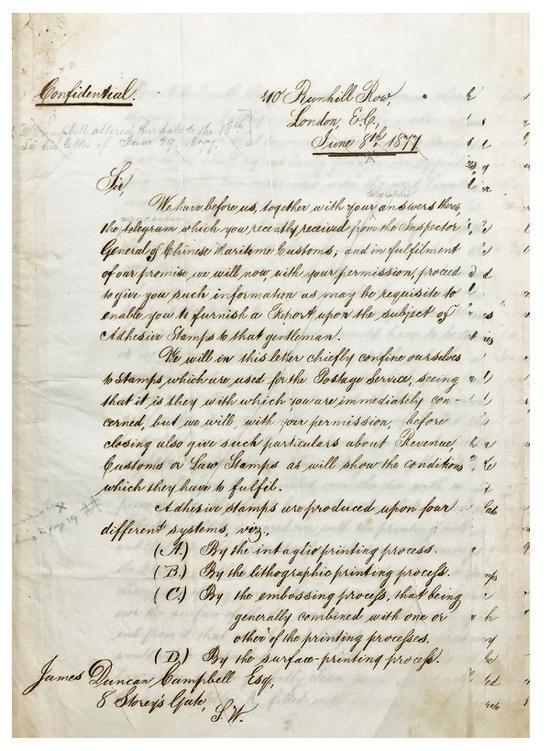 Confidential.
110 Bunhill Row,
London, E.C.,
June 8th. 1877
Campbell altered this date to the 18th
See his letter of June 29. 1877.
Sir,
telegraphic
We have before us, together with your answers thereto,
the telegram which you recently received from the Inspector
General of Chinese Maritime Customs; and in fulfilment
of our promise, we will now with your permission, proceed
to give you such information as may be requisite to
enable you to furnish a Report upon the subject of
Adhesive Stamps to that gentleman.
We will in this letter chiefly confine ourselves
to Stamps, which are used for the Postage Service, seeing
that it is they with which you are immediately con-
cerned, but we will, with your permission, before
closing also give such particulars about Revenue,
Customs or Law Stamps as will show the conditions
which they have to fulfil.
Adhesive stamps are produced upon four
different systems, viz.,
(A.) By the intaglio printing process.
(B.) By the lithographic printing process.
(C.) By the embossing process, that being
generally combined with one or
other of the printing processes.
(D.) By the surface-printing process.
James Duncan Campbell Esq.,
8 Storey's Gate,
S.W.